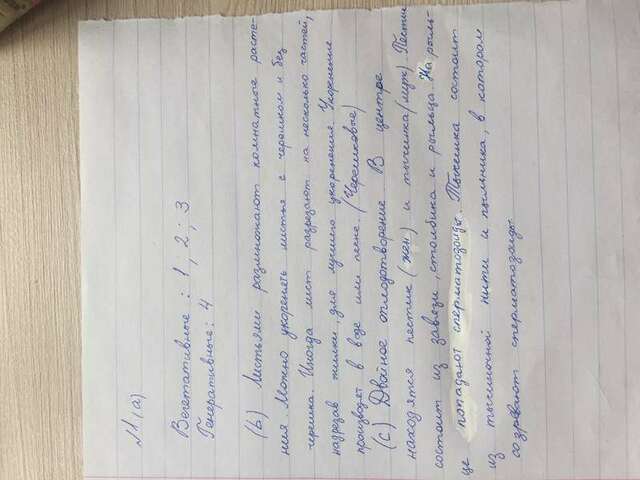 №1(a)
Вегетативные: 1; 2; 3
Генеративные: 4
(b) Листьями размножают комнатные расте-
ния. Можно укоренять листье с черешком и без
черешка. Иногда лист разрезают на несколько частей,
надрезав жилки, для лучшего укоренения. Укоренение
производят в воде или песке. (Черешковые)
(c) Двойное оплодотворение В центре
находятся пестик (жен) и тычинка (муж) Пестик
состоит из завязи, столбика и рыльца. На рыль-
це попадают сперматозоиды. Тычинка состоит
из тычиночной нити и пыльника, в котором
созревают сперматозоиды